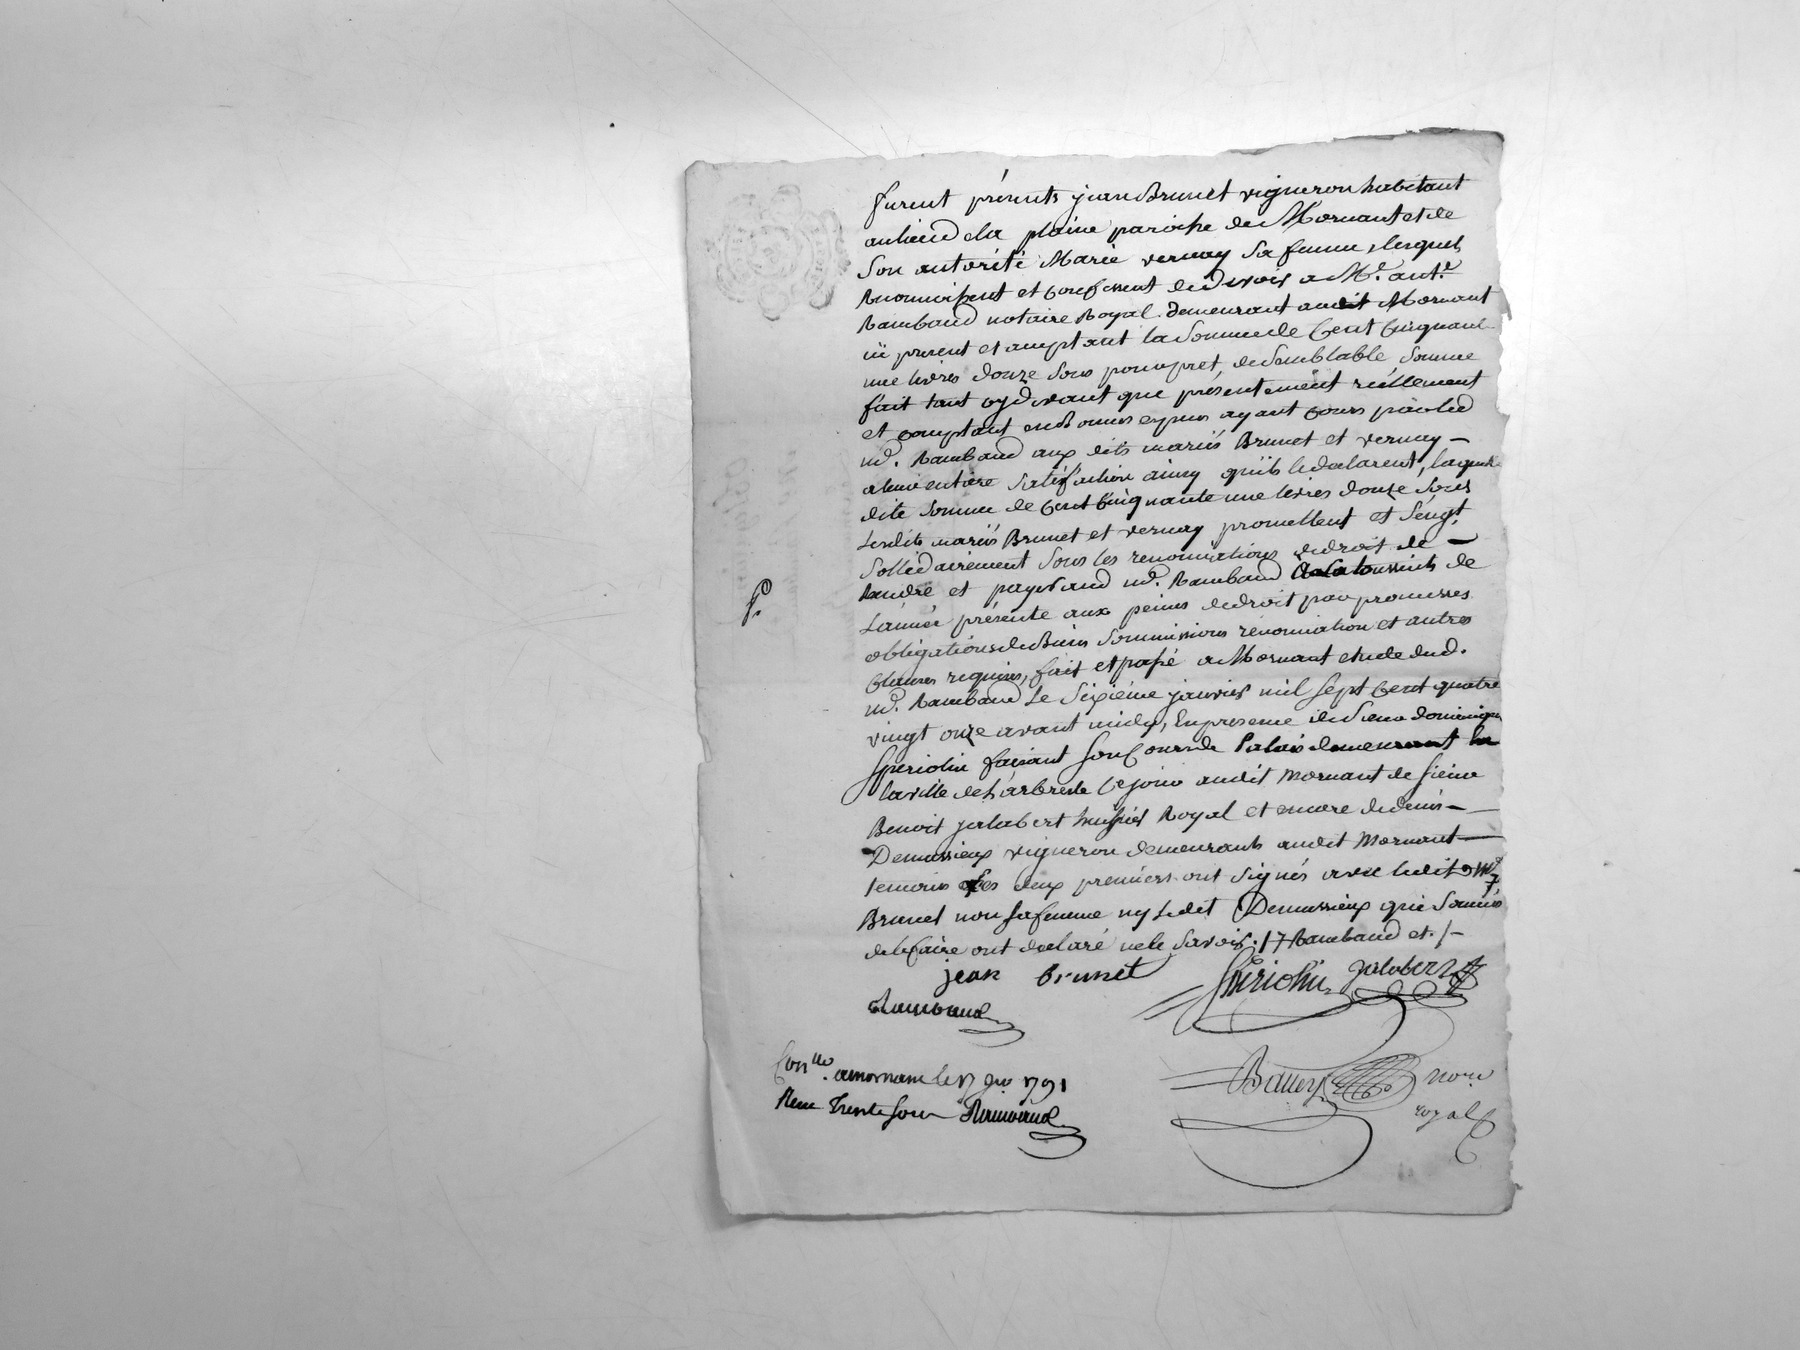 furent présents jean Brunet vigneron habitant
au lieu de la plaine paroisse de Mornant et de
son autorité Marie vernay sa femme, lesquels
Reconnoissent et confessent de devoir a Me. ant.e
Rambaud notaire Royal demeurant audit Mornant
ici present et acceptant la somme de Cent Cinquante
une livres douze sous pour pret, de semblable somme
fait tant cy devant que présentement réellement
et comptant en bonnes espèces ayant cours par led
md. Rambaud aux dits mariés Brunet et vernay —
a leur entière satisfaction ainsy qu'ils le declarent, laquelle
dite somme de Cent Cinquante une livres douze sous
Lesdits mariés Brunet et vernay promettent et s'engt.
sollidairement sous les renonciations de droit de —
Rendre et payer aud md. Rambaud a la toussaints de
L'année présente aux peines de droit par promesses
obligations de Biens soummissions renonciation et autres
Clauses requises, fait et passé a Mornant etude dud.
md. Rambaud Le sixième janvier mil sept Cent quatre
vingt onze avant midy, En presence de sieur dominique
Speriolin faisant son Cours de Palais demeurant En
la ville de L'arbresle Cejour audit Mornant de sieur
Benoit jalabert huissier Royal et encore de denis —
Demussieux vigneron demeurants audit Mornant —
temoins Les deux premiers ont signés avec ledit md
Brunet non sa femme ny Ledit Demussieux qui sommés
de le faire ont declaré ne le savoir. /7 Rambaud et. /-
jean brunet
Speriolin jalabert
Rambaud
Con.llé. a mornant le 17 janv 1791
Reçu Trente sous Rambaud
not.re
royal